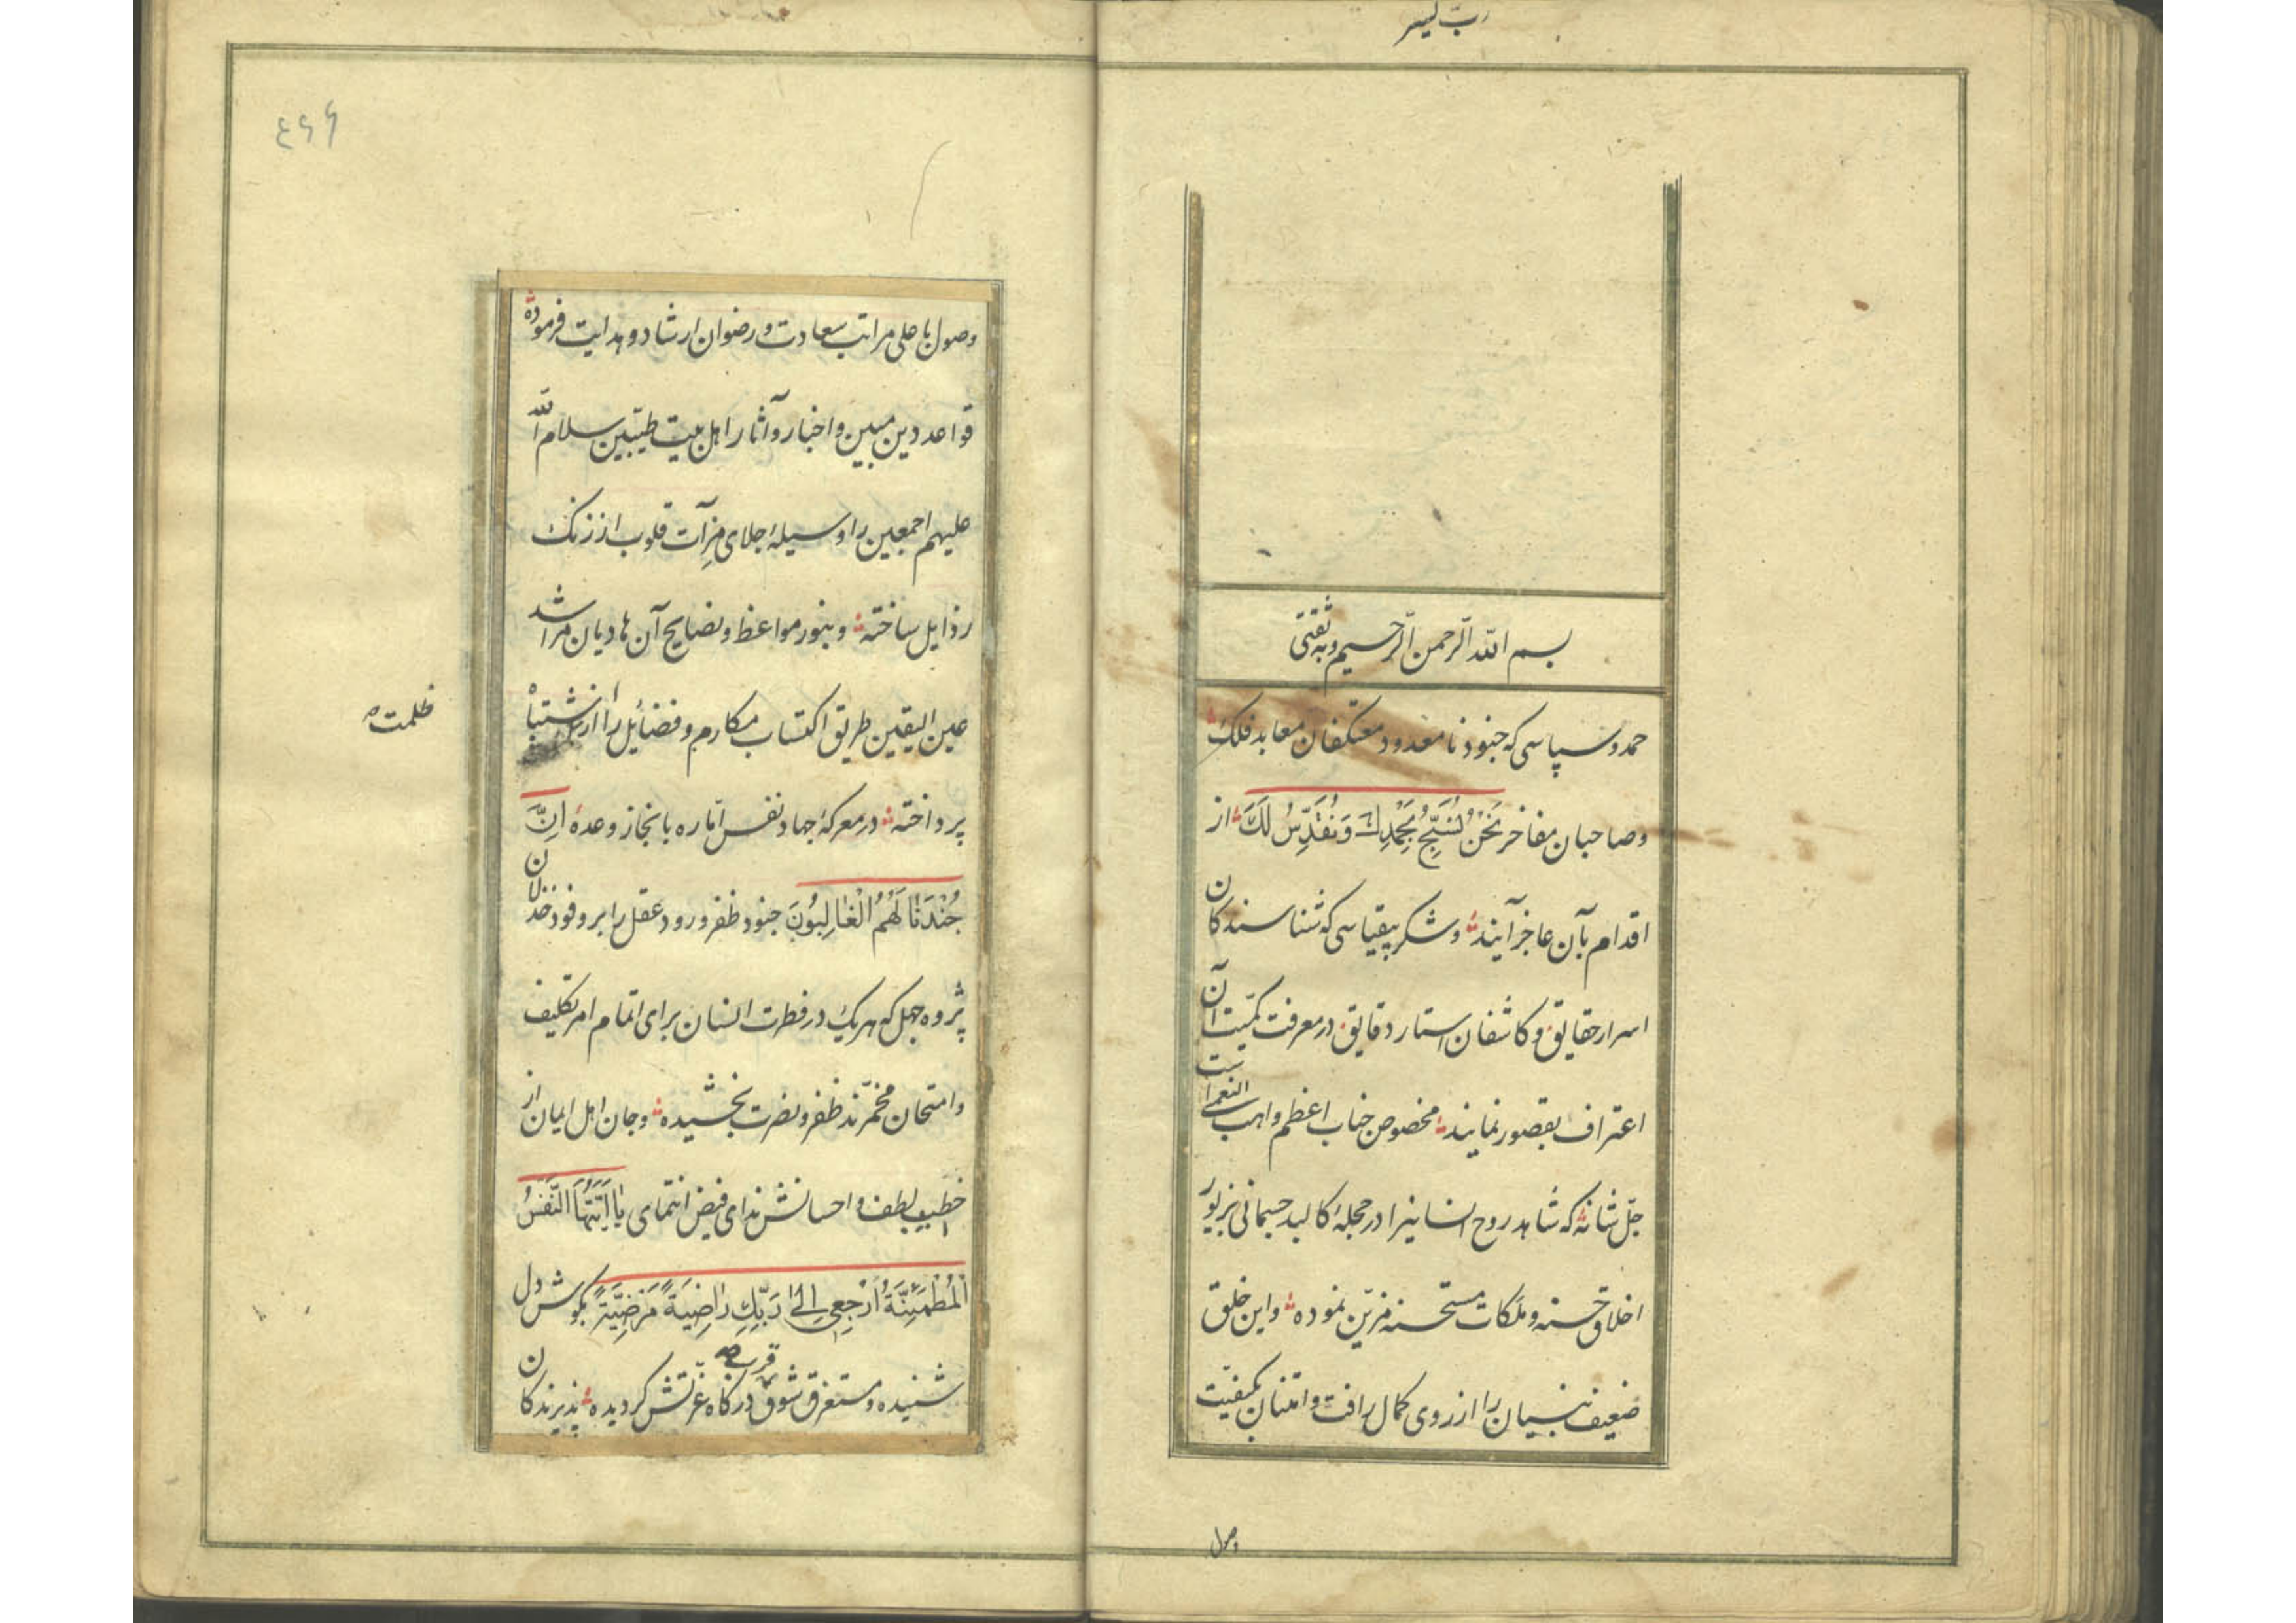 رب یسر
بسم الله الرحمن الرحیم وبه ثقتی
حمد و سپاسی که جنود نامعدود معتکفان معابد فلک
وصاحبان مفاخر نَحْنُ نُسَبِّحُ بِحَمْدِكَ وَنُقَدِّسُ لَكَ از
اقدام بآن عاجز آیند و شکر بیقیاسی که شناسندکان
اسرار حقایق و کاشفان استار دقایق در معرفت کمّیت آن
اعتراف بقصور نمایند مخصوص جناب اعظم واهب النعمایست
جلّ شانه که شاهد روح انسانیرا در حجلهٔ کالبد جسمانی بزیور
اخلاق حسنه و ملکات مستحسنه مزیّن نموده و این خلق
ضعیف بنیان را از روی کمال رافت و امتنان بکیفیّت
وصول
٤٦٦
وصول باعلی مراتب سعادت و رضوان ارشاد و هدایت فرموده
قواعد دین مبین و اخبار و آثار اهل بیت طیّبین سلام الله
علیهم اجمعین را وسیلهٔ جلای مِرآت قلوب از زنک
رذایل ساخته و بنور مواعظ و نصایح آن هادیان مراشد
عین الیقین طریق اکتساب مکارم و فضائل را از اشتباه
ظلمت
پرداخته در معرکهٔ جهاد نفس امّاره بانجاز وعدهٔ اِنَّ
جُنْدَنَا لَهُمُ الْغَالِبُونَ جنود ظفر ورود عقل را بر وفود خذلان
پژوه جهل که هریک در فطرت انسان برای اتمام امر تکلیف
وامتحان مخمّرند ظفر و نصرت بخشیده و جان اهل ایمان از
خطیب لطف و احسانش ندای فیض انتمای یَا اَیَّتُهَا النَّفْسُ
الْمُطْمَئِنَّةُ ارْجِعِی اِلَی رَبِّكِ رَاضِیَةً مَرْضِیَّةً بکوش دل
شنیده و مستغرق شوق قرب درکاه عزّتش کردیده پذیرندکان